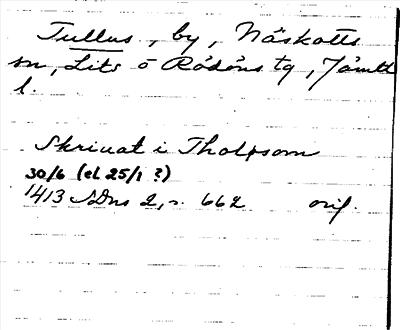 Tullus, by, Näskotts
sn, Lits o Rödöns tg, Jämtl
l.
Skrivat i Tholpsom
30/6 (el 25/1 ?)
1413 SDns 2, s. 662 orig.